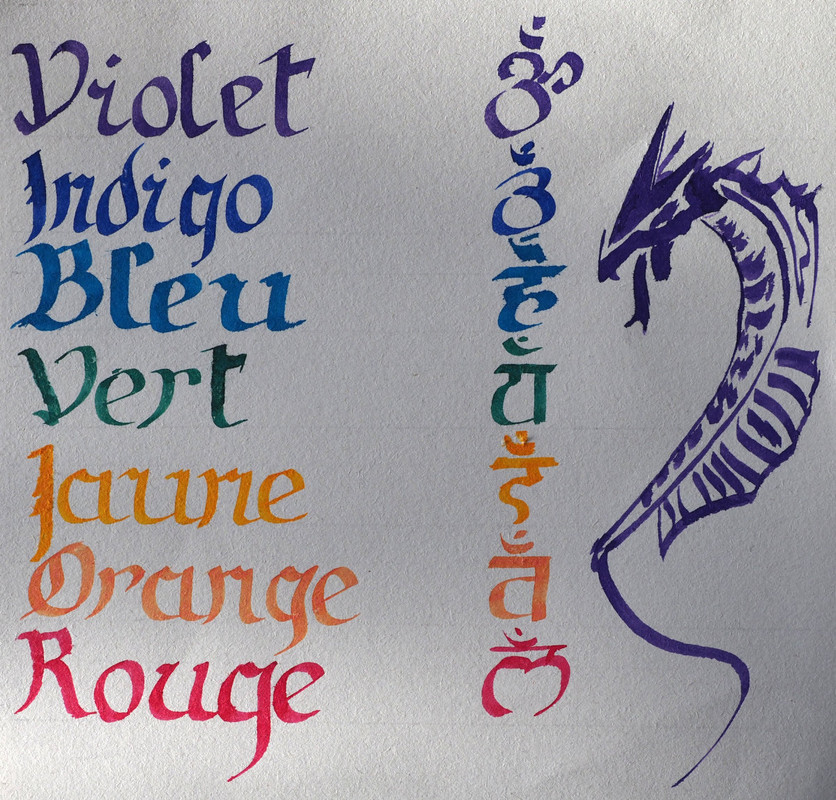 Violet ॐ
Indigo
Bleu हँ
Vert यँ
Jaune रँ
Orange वँ
Rouge लँ